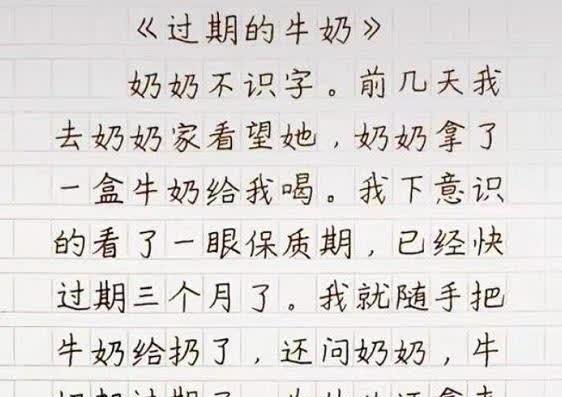 《过期的牛奶》
奶奶不识字。前几天我
去奶奶家看望她，奶奶拿了
一盒牛奶给我喝。我下意识
的看了一眼保质期，已经快
过期三个月了。我就随手把
牛奶给扔了，还问奶奶，牛